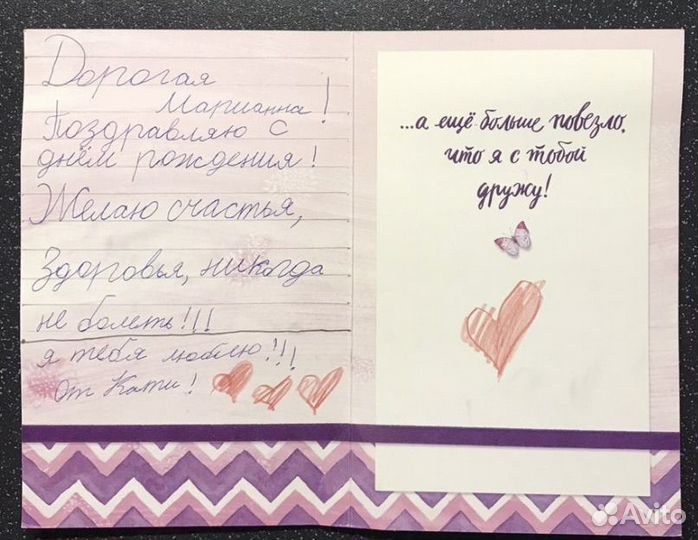 Дорогая
Марианна!
Поздравляю с
днём рождения!
Желаю счастья,
Здоровья, никогда
не болеть!!!
я тебя люблю!!!
От Кати!
...а ещё больше повезло,
что я с тобой
дружу!
Avito